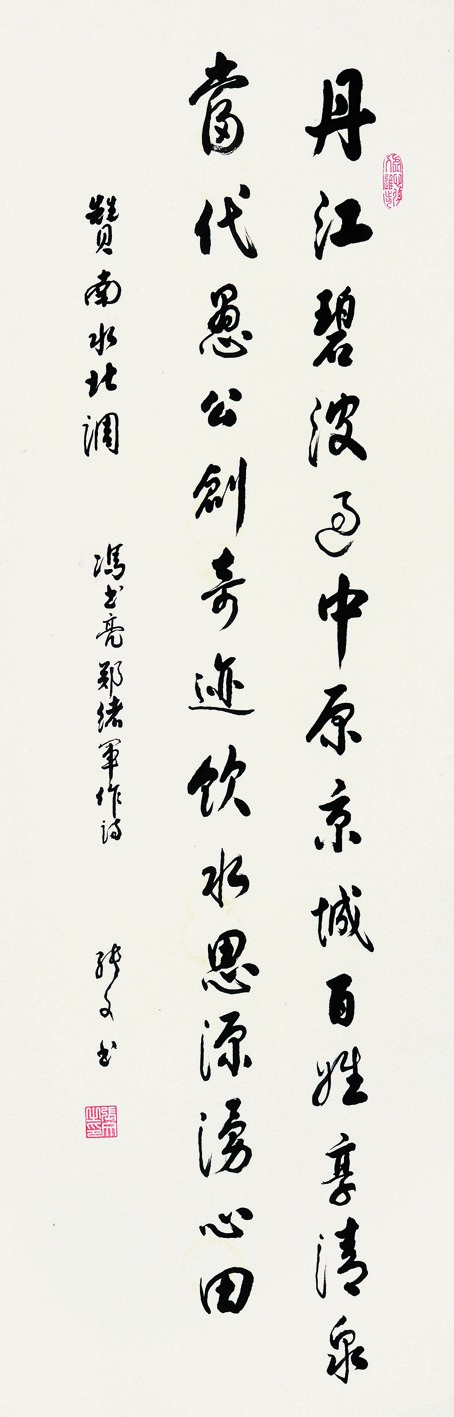 丹江碧波过中原京城百姓享清泉
當代愚公創奇迹飲水思源湧心田
贊南水北调
馮书亮鄭緒軍作诗
张文书